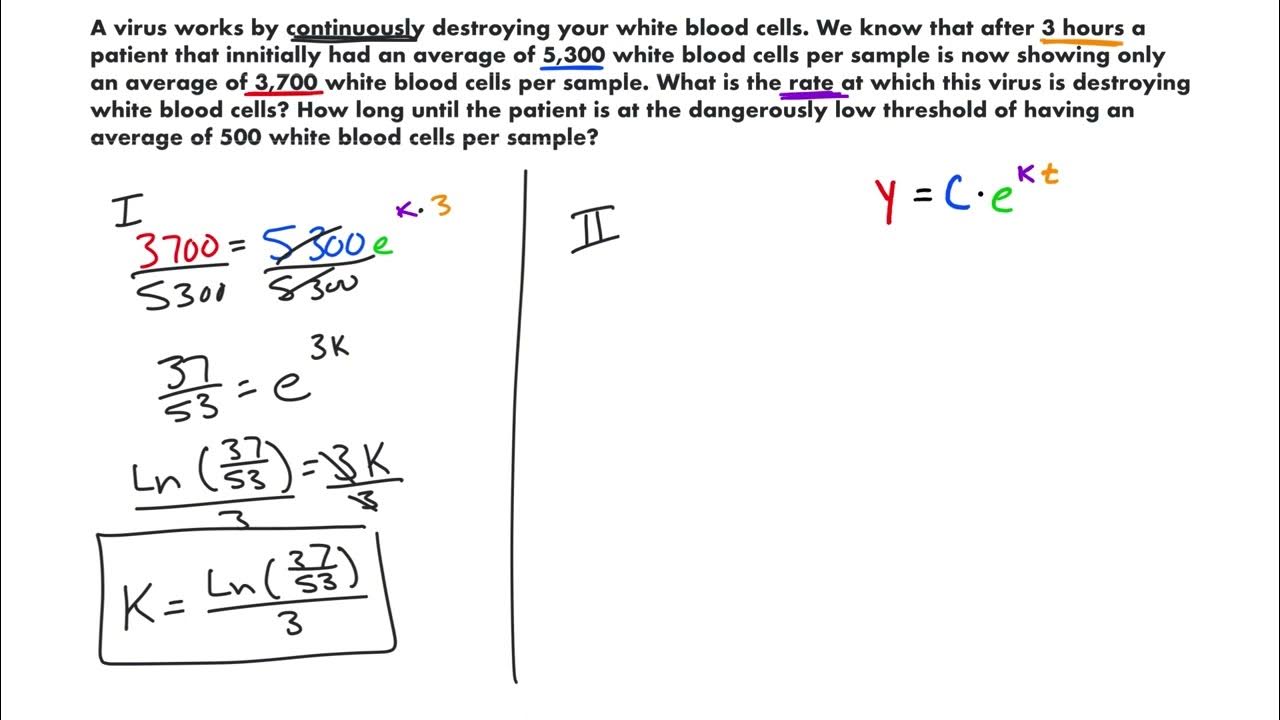 A virus works by continuously destroying your white blood cells. We know that after 3 hours a
patient that innitially had an average of 5,300 white blood cells per sample is now showing only
an average of 3,700 white blood cells per sample. What is the rate at which this virus is destroying
white blood cells? How long until the patient is at the dangerously low threshold of having an
average of 500 white blood cells per sample?
I
3700/5300 = 5300e^(K·3)/5300
37/53 = e^(3K)
Ln(37/53)/3 = 3K/3
K = Ln(37/53)/3
II
Y = C·e^(Kt)